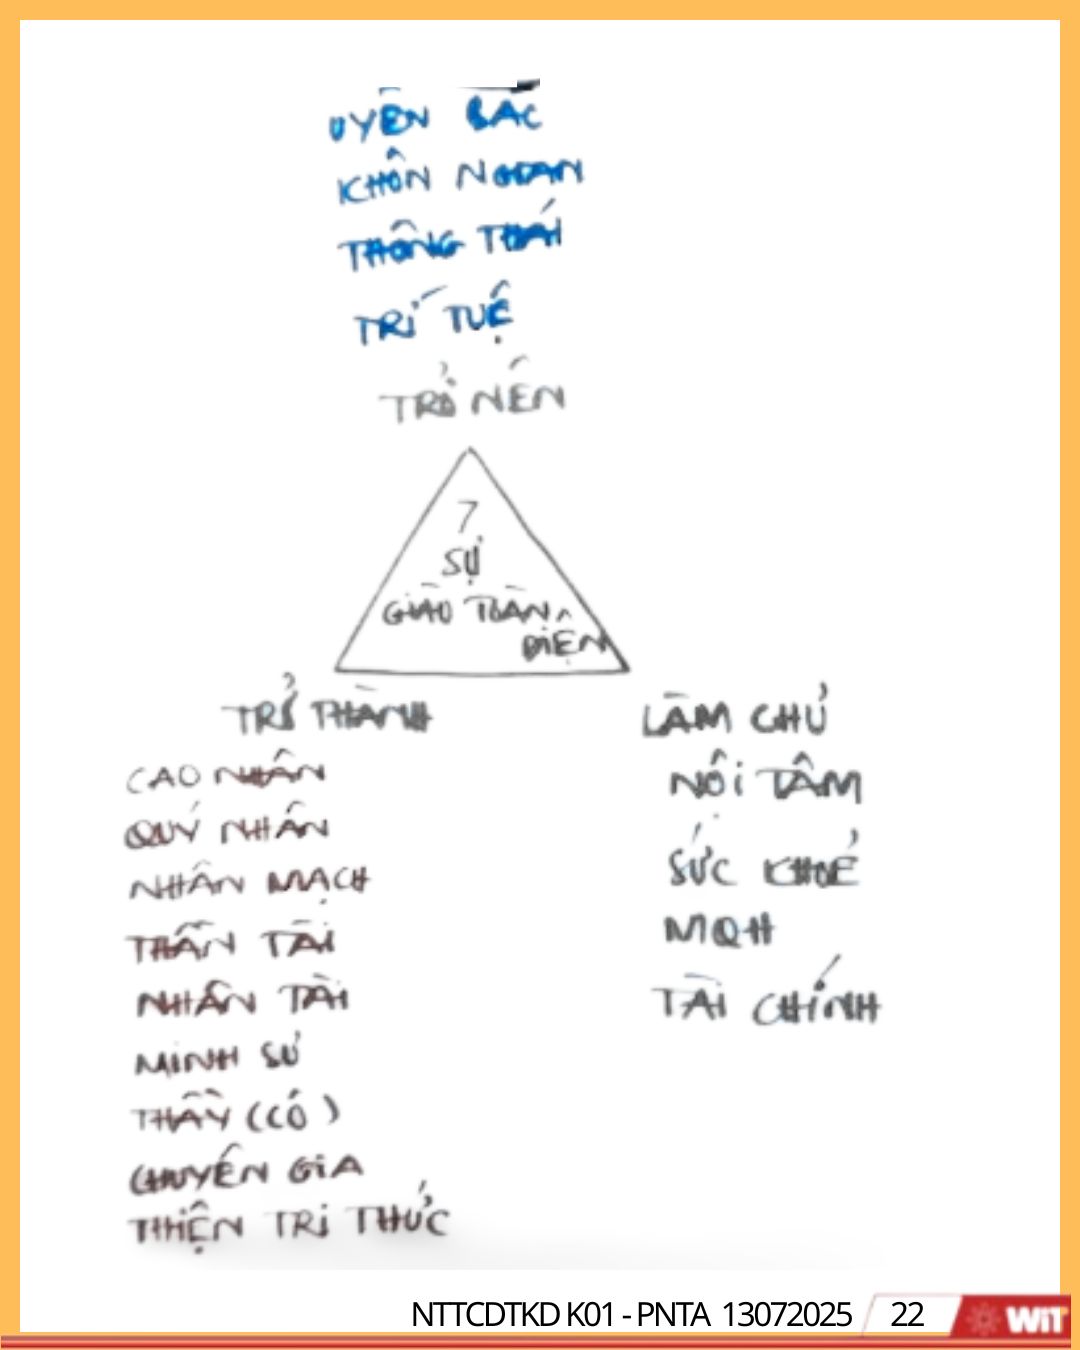 UYÊN BÁC
KHÔN NGOAN
THÔNG THÁI
TRÍ TUỆ
TRỞ NÊN
7
SỰ
GIÀO TOÀN
DIỆN
TRỞ THÀNH
CAO NHÂN
QUÝ NHÂN
NHÂN MẠCH
THẦN TÀI
NHÂN TÀI
MINH SƯ
THẦY (CÔ)
CHUYÊN GIA
THIỆN TRI THỨC
LÀM CHỦ
NỘI TÂM
SỨC KHOẺ
MQH
TÀI CHÍNH
NTTCDTKD K01 - PNTA 13072025
22
WiT